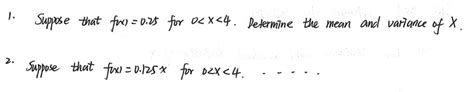 1. Suppose that f(x) = 0.25 for 0<x<4. Determine the mean and variance of X.
2. Suppose that f(x) = 0.125x for 0<x<4. - - - - -